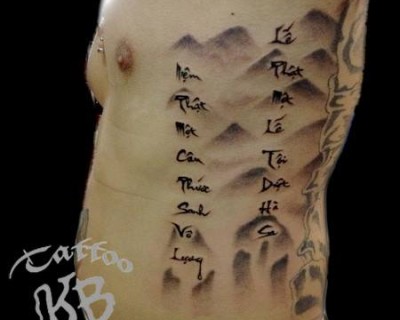 Niệm
Phật
Một
Câu
Phước
Sanh
Vô
Lượng
Lễ
Phật
Một
Lễ
Tội
Diệt
Hà
Sa
Tattoo
KB